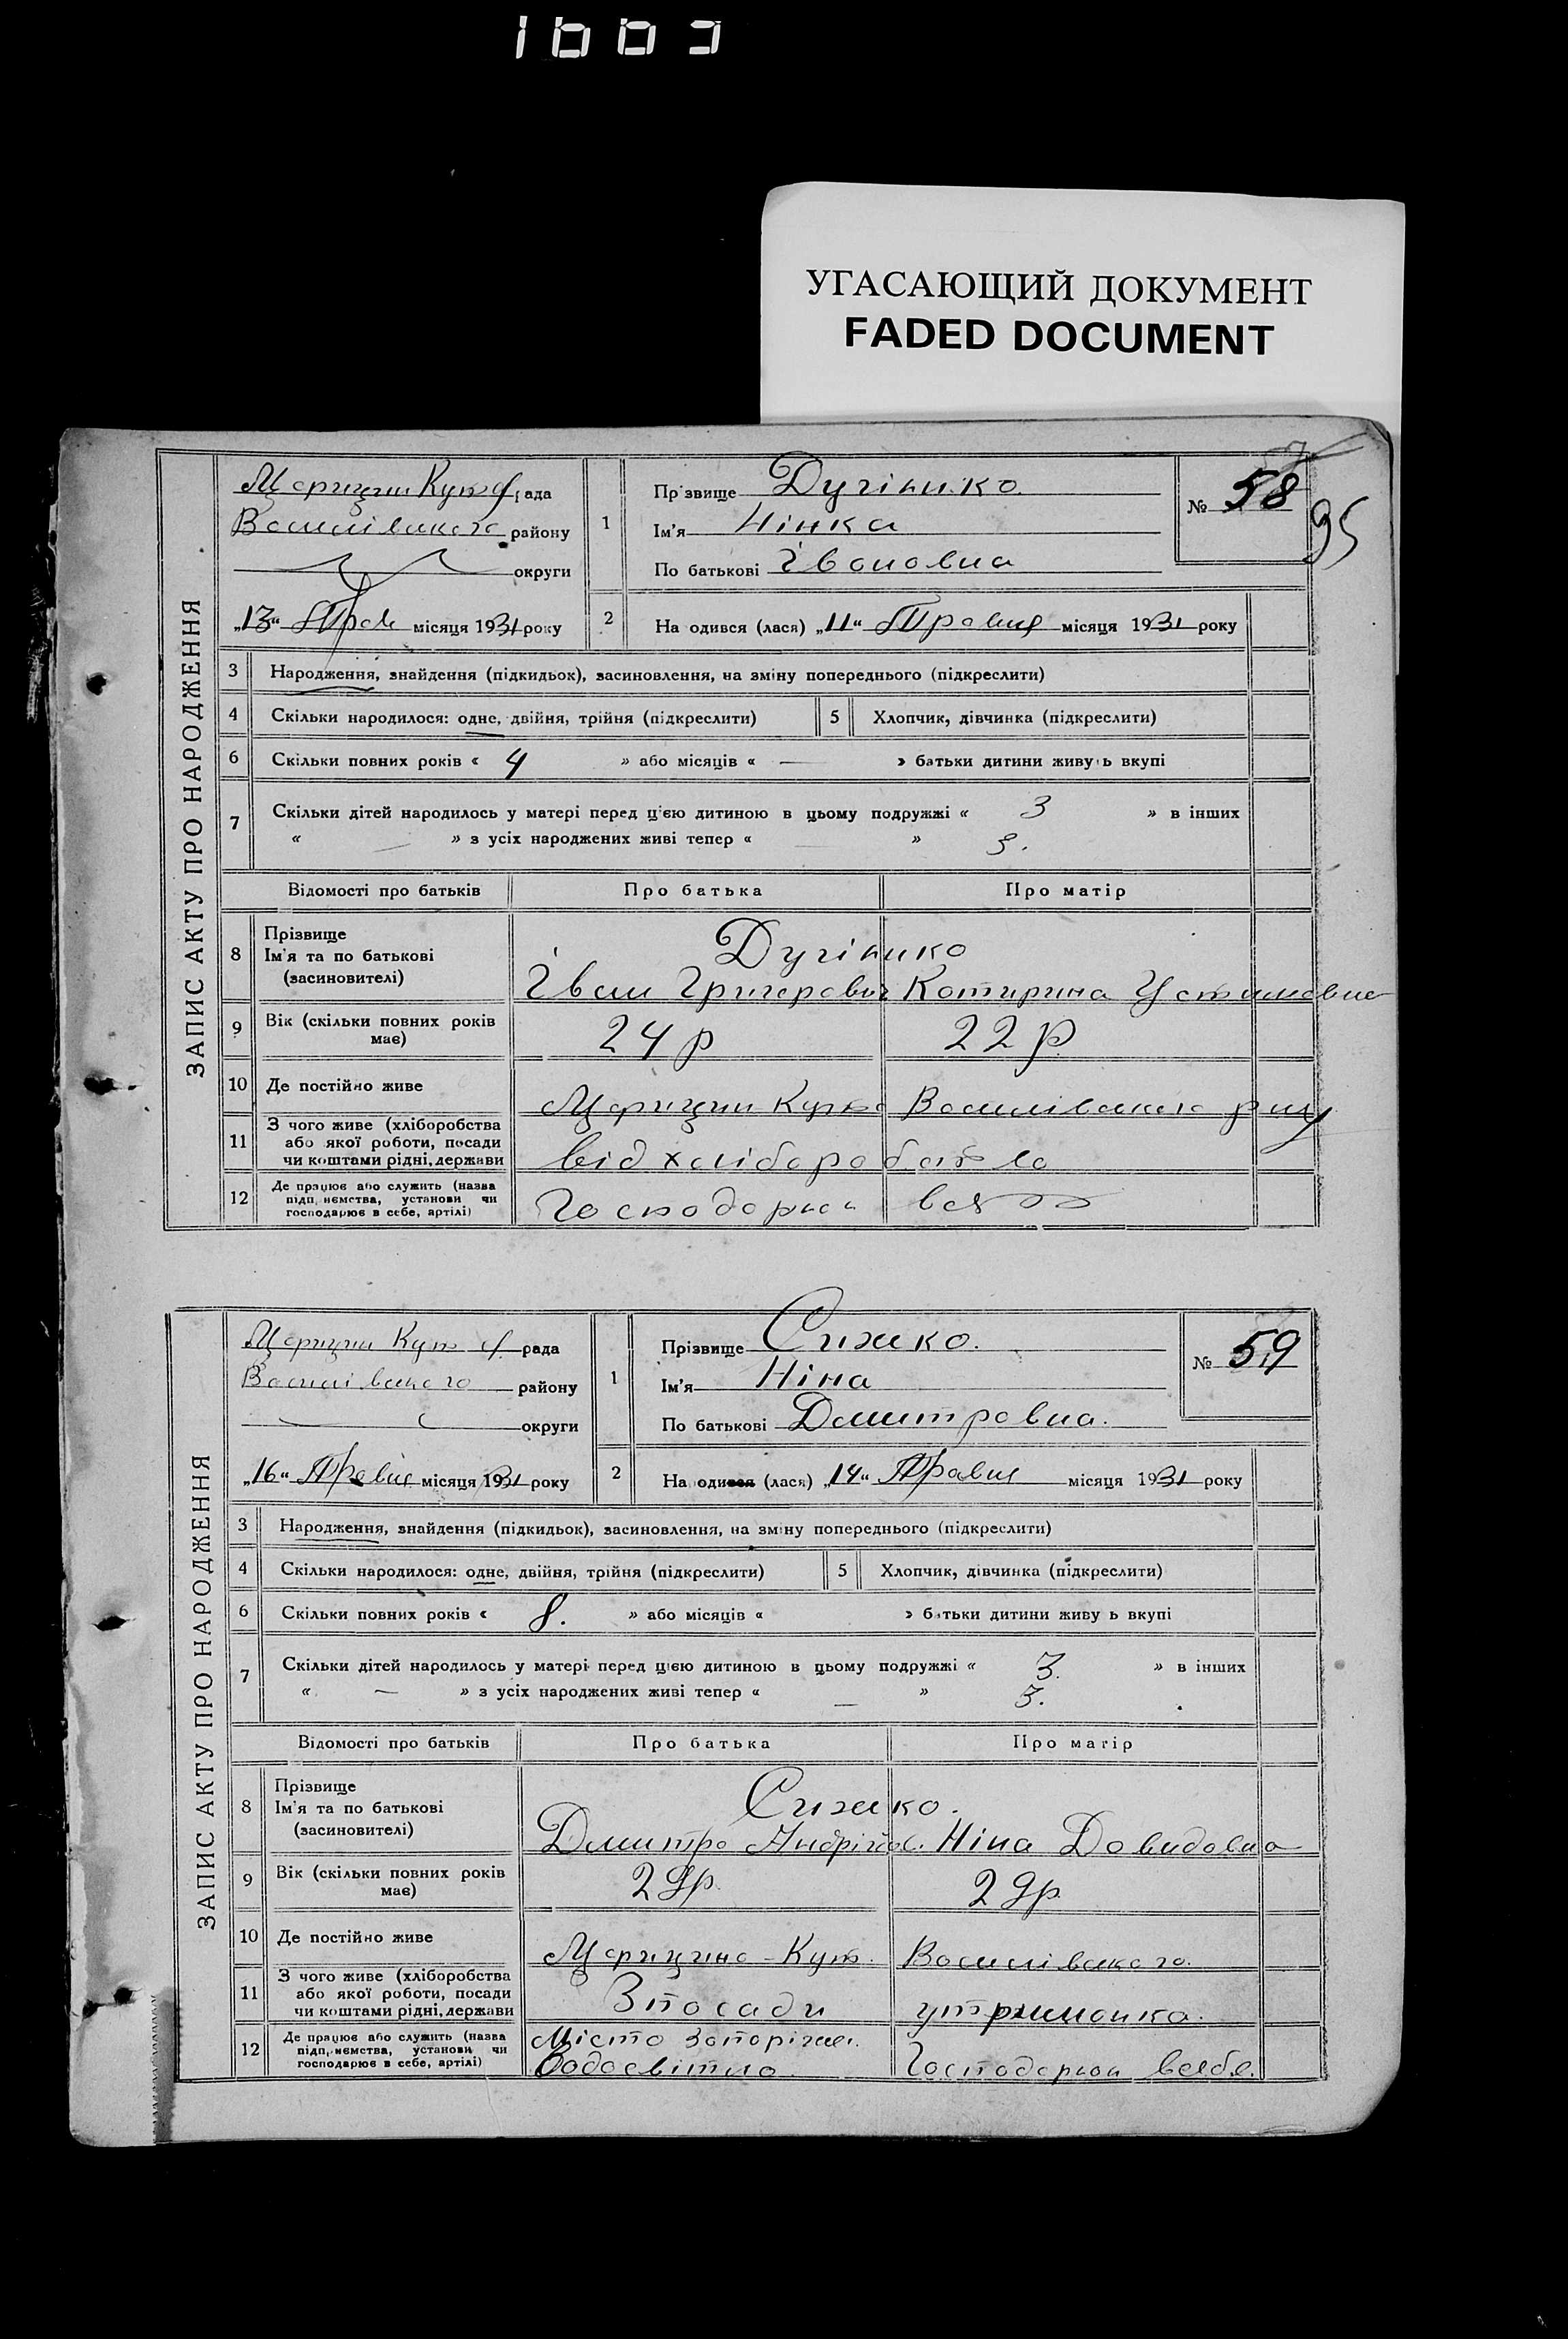 УГАСАЮЩИЙ ДОКУМЕНТ
FADED DOCUMENT
95
ЗАПИС АКТУ ПРО НАРОДЖЕННЯ
Царицин Кут рада
Василівського району
округи
„13“ Трав місяця 1931 року
1
Прізвище
Ім'я Нінка
По батькові Івановна
№ 58
2 На одився (лася) „11“ Травня місяця 1931 року
3 Народження, знайдення (підкидьок), засиновлення, на зміну попереднього (підкреслити)
4 Скільки народилося: одне, двійня, трійня (підкреслити) 5 Хлопчик, дівчинка (підкреслити)
6 Скільки повних років « 4 » або місяців « — » батьки дитини живуть вкупі
7 Скільки дітей народилось у матері перед цією дитиною в цьому подружжі « 3 » в інших
« — » з усіх народжених живі тепер « — » 3.
Відомості про батьків Про батька Про матір
8 Прізвище
Ім'я та по батькові
(засиновителі)
Іван Григорович Катирина Устимовна
9 Вік (скільки повних років має) 24 р 22 р
10 Де постійно живе Царицин Кут Василівського р-ну
11 З чого живе (хліборобства або якої роботи, посади чи коштами рідні, держави від хліборобства
12 Де працює або служить (назва підприємства, установи чи господарює в себе, артілі)
ЗАПИС АКТУ ПРО НАРОДЖЕННЯ
Царицин Кут рада
Василівського району
округи
„16“ Травня місяця 1931 року
1
Прізвище Сижко.
Ім'я Ніна
По батькові Дмитровна.
№ 59
2 На одився (лася) „14“ Травня місяця 1931 року
3 Народження, знайдення (підкидьок), засиновлення, на зміну попереднього (підкреслити)
4 Скільки народилося: одне, двійня, трійня (підкреслити) 5 Хлопчик, дівчинка (підкреслити)
6 Скільки повних років « 8. » або місяців « » батьки дитини живу ь вкупі
7 Скільки дітей народилось у матері перед цією дитиною в цьому подружжі « 3. » в інших
« — » з усіх народжених живі тепер « — » 3.
Відомості про батьків Про батька Про матір
8 Прізвище
Ім'я та по батькові
(засиновителі)
Сижко.
Дмитро Андрійов. Ніна Давидовна
9 Вік (скільки повних років має) 29р. 29р
10 Де постійно живе Царицино-Кут. Василівського.
11 З чого живе (хліборобства або якої роботи, посади чи коштами рідні, держави Зпосади утриманка.
12 Де працює або служить (назва підприємства, установи чи господарює в себе, артілі)
Місто Запоріжж.
Водосвітло Господарює